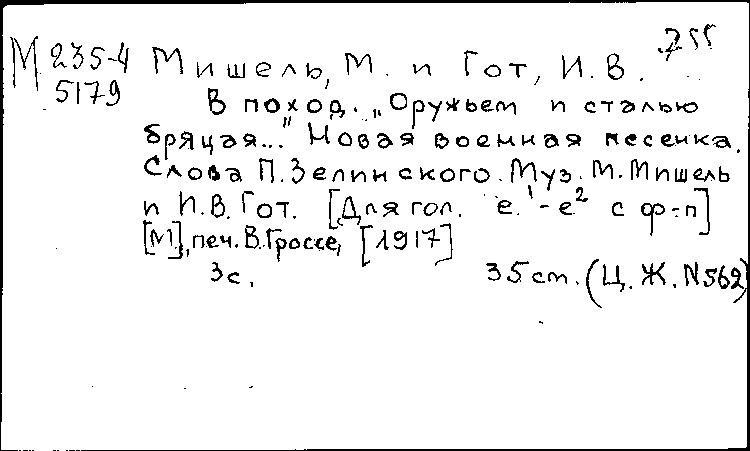 М 235-4 Мишель, М. и Гот, И.В. 255
5179 В поход. „Оружьем и сталью
бряцая..." Новая военная песенка.
Слова П.Зелинского. Муз. М.Мишель
и И.В.Гот. [Для гол. e¹-e² с ф-п]
[М], печ. В.Гроссе, [1917]
3с. 35 см. (Ц.Ж.N562)